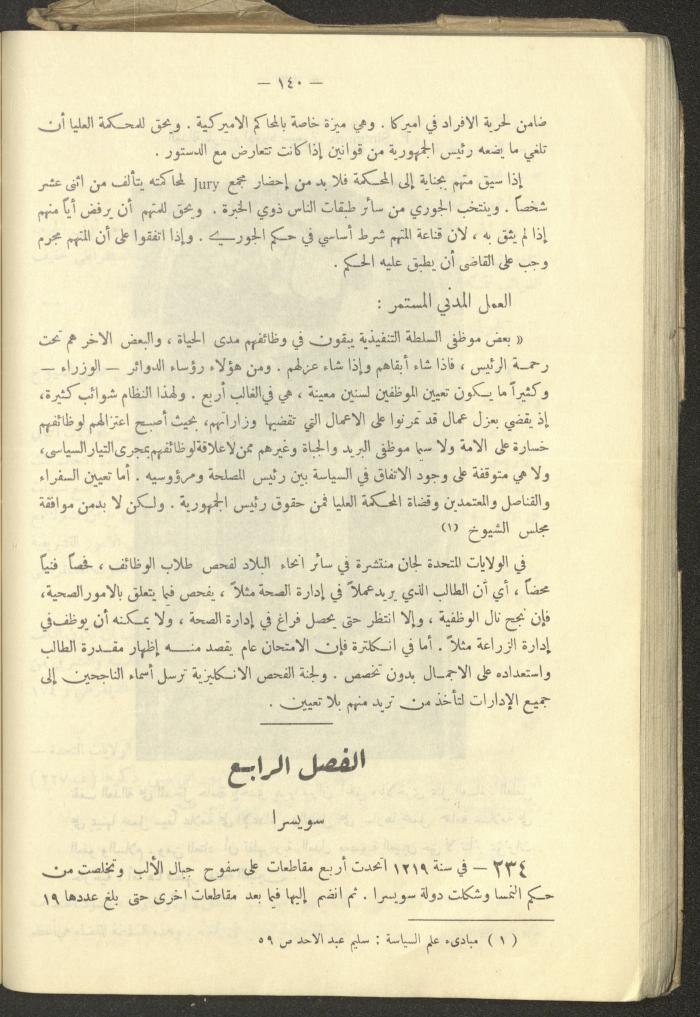 — ١٤٠ —
ضامن لحرية الافراد في اميركا . وهي ميزة خاصة بالمحاكم الاميركية . ويحق للمحكمة العليا أن
تلغي ما يضعه رئيس الجمهورية من قوانين إذا كانت تتعارض مع الدستور .
إذا سيق متهم بجناية إلى المحكمة فلا بد من إحضار مجمع Jury لمحاكمته يتألف من اثنى عشر
شخصاً . وينتخب الجوري من سائر طبقات الناس ذوي الخبرة . ويحق للمتهم أن يرفض أياً منهم
إذا لم يثق به ، لان قناعة المتهم شرط أساسي في حكم الجوري . وإذا اتفقوا على أن المتهم مجرم
وجب على القاضى أن يطبق عليه الحكم .
العمل المدني المستمر :
« بعض موظفى السلطة التنفيذية يبقون في وظائفهم مدى الحياة ، والبعض الاخر هم تحت
رحمة الرئيس ، فاذا شاء أبقاهم وإذا شاء عزلهم . ومن هؤلاء رؤساء الدوائر — الوزراء —
وكثيراً ما يكون تعيين الموظفين لسنين معينة ، هي في الغالب أربع . ولهذا النظام شوائب كثيرة،
إذ يقضي بعزل عمال قد تمرنوا على الاعمال التي تقضيها وزاراتهم، بحيث أصبح اعتزالهم لوظائفهم
خسارة على الامة ولا سيما موظفى البريد والجباة وغيرهم ممن لاعلاقة لوظائفهم بمجرى التيار السياسى،
ولا هي متوقفة على وجود الاتفاق في السياسة بين رئيس المصلحة ومرؤوسيه . أما تعيين السفراء
والقناصل والمعتمدين وقضاة المحكمة العليا فمن حقوق رئيس الجمهورية . ولكن لا بدمن موافقة
مجلس الشيوخ (١)
في الولايات المتحدة لجان منتشرة في سائر انحاء البلاد لفحص طلاب الوظائف ، فحصاً فنياً
محضاً ، أي أن الطالب الذي يريد عملاً في إدارة الصحة مثلاً ، يفحص فيما يتعلق بالامور الصحية،
فإن نجح نال الوظفية ، وإلا انتظر حتى يحصل فراغ في إدارة الصحة ، ولا يمكنه أن يوظف في
إدارة الزراعة مثلاً . أما في انكلترة فإن الامتحان عام يقصد منه إظهار مقدرة الطالب
واستعداده على الاجمال بدون تخصص . ولجنة الفحص الانكليزية ترسل أسماء الناجحين إلى
جميع الإدارات لتأخذ من تريد منهم بلا تعيين .
الفصل الرابع
سويسرا
٢٣٤ — في سنة ١٢١٩ اتحدت أربع مقاطعات على سفوح جبال الألب وتخلصت من
حكم النمسا وشكلت دولة سويسرا . ثم انضم إليها فيما بعد مقاطعات اخرى حتى بلغ عددها ١٩
(١) مبادىء علم السياسة : سليم عبد الاحد ص ٥٩